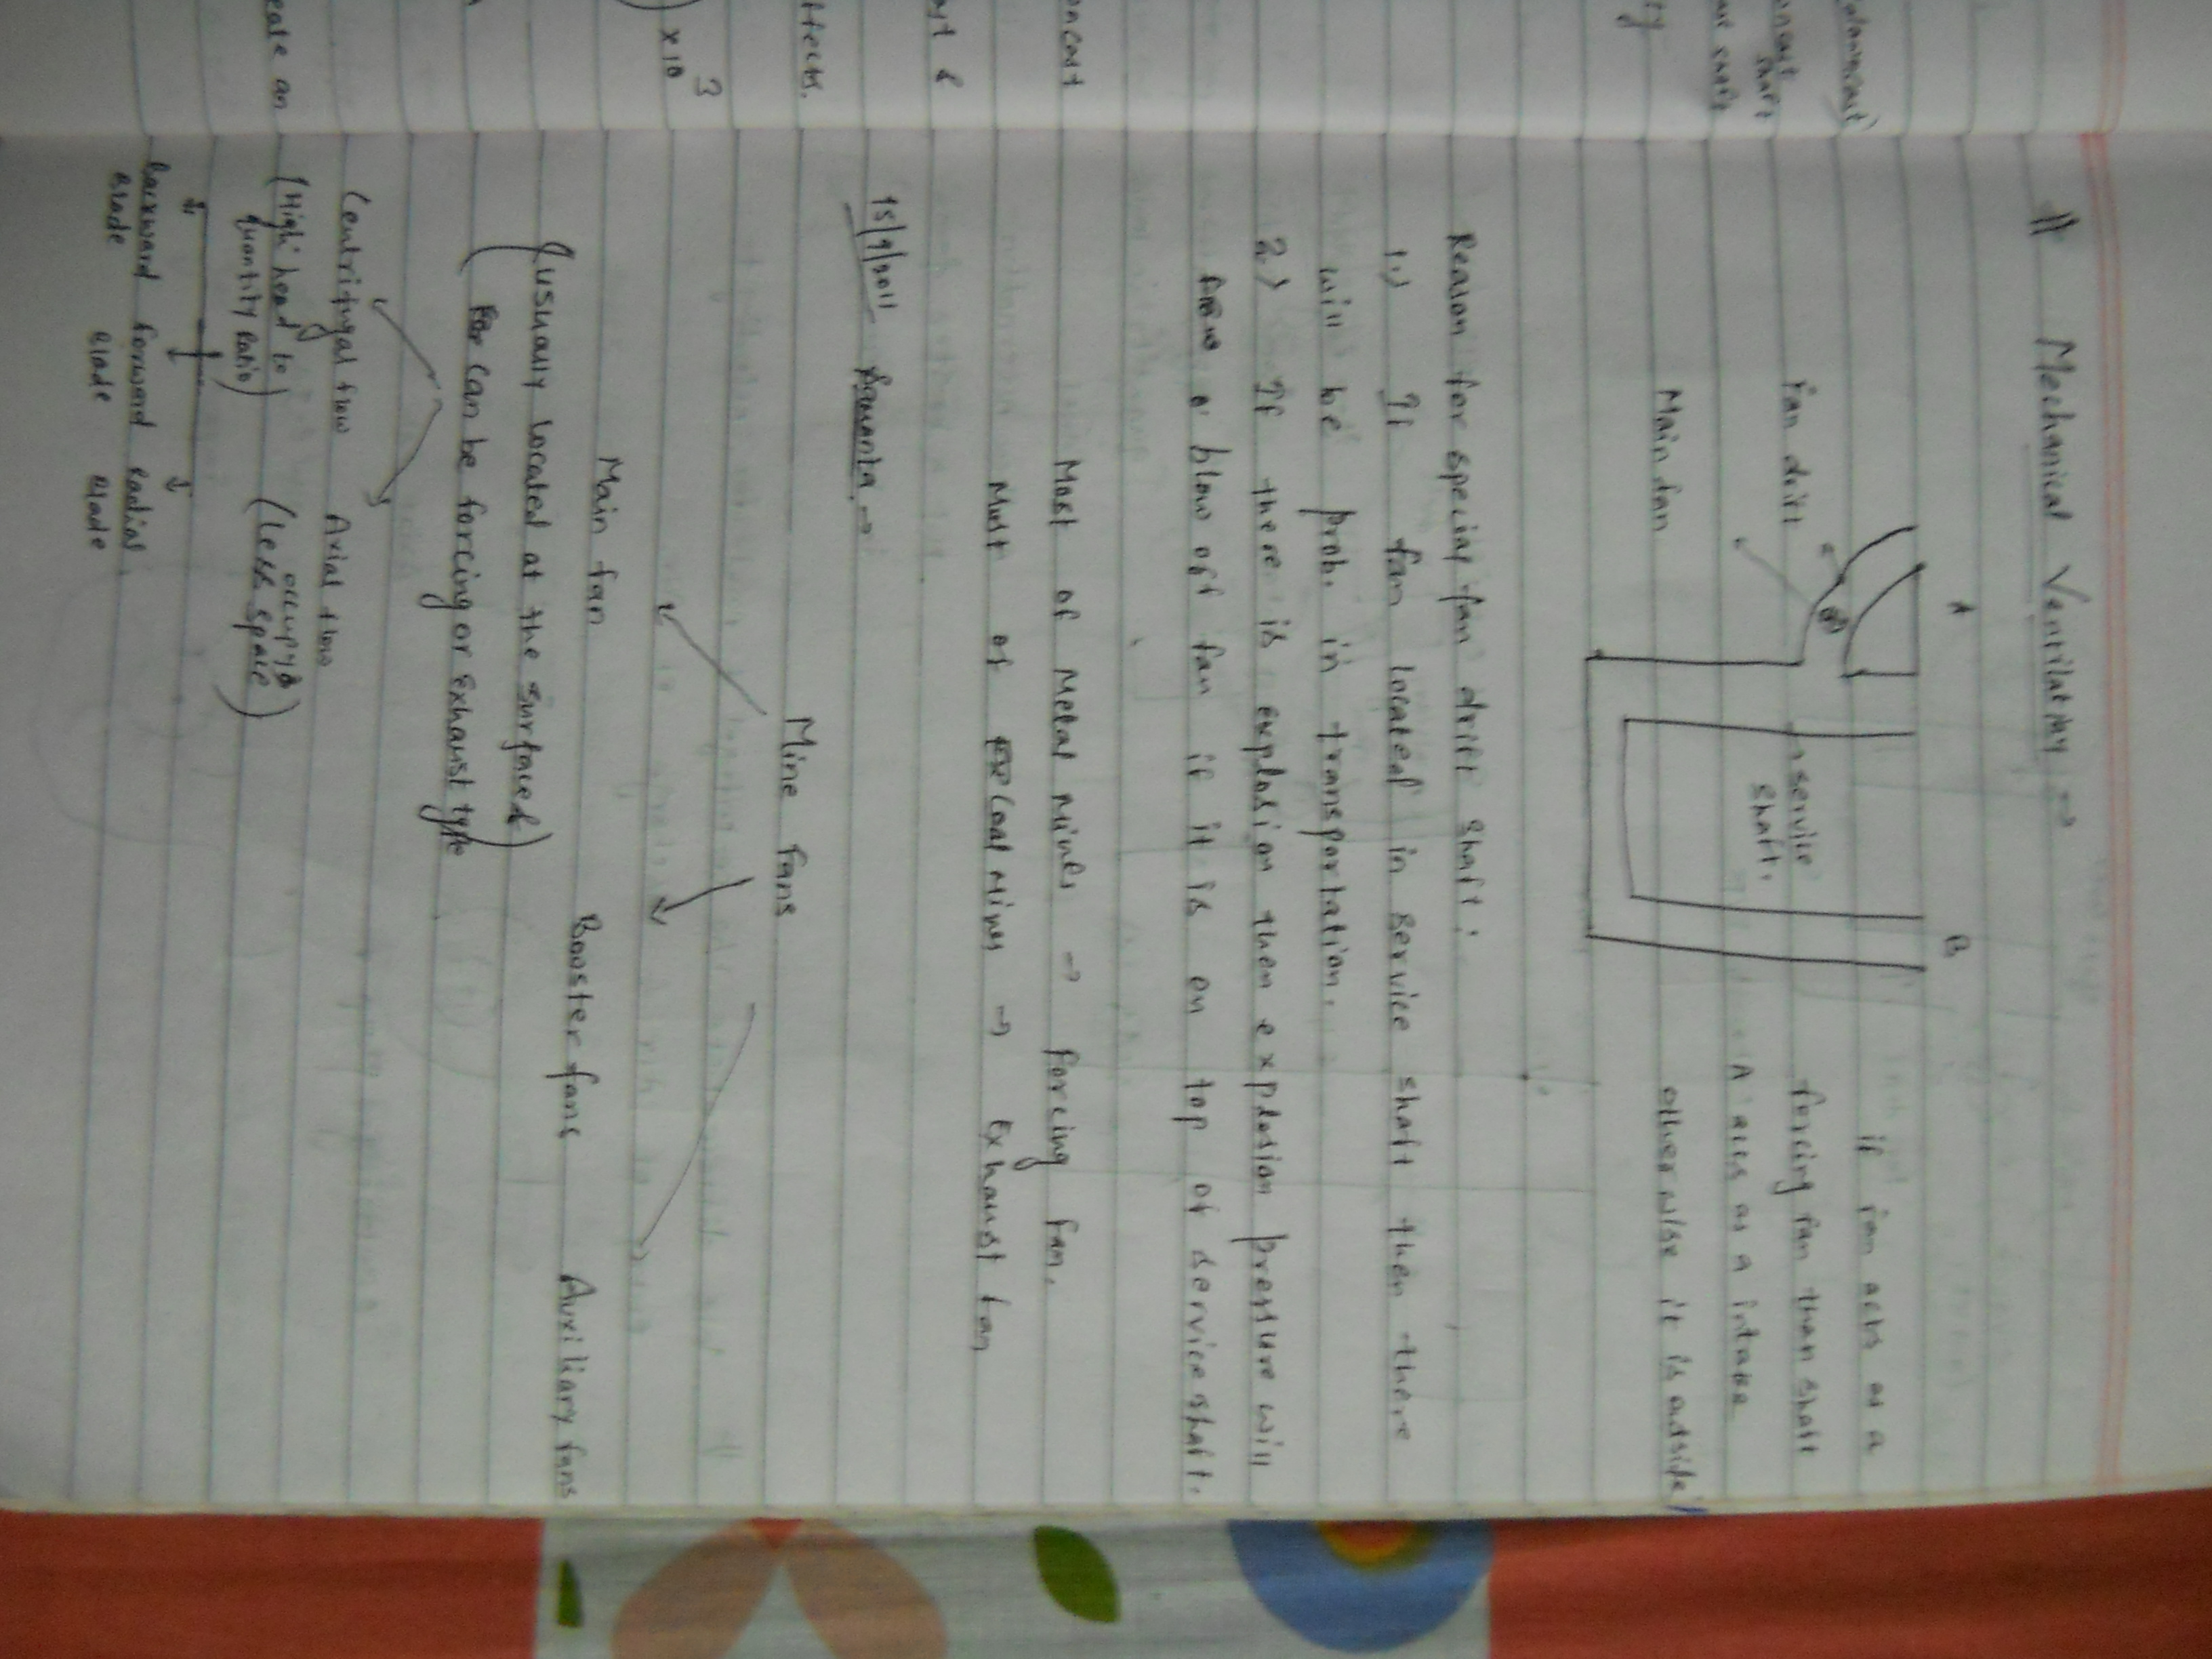 # Mechanical Ventilation →
A B
Fan drift
Main fan
service
shaft.
if fan acts as a
forcing fan than shaft
'A' acts as a intake
otherwise it is outside
Reason for special fan drift shaft :
1.) If fan located in service shaft then there
will be prob. in transportation.
2.) If there is explosion then explosion pressure will
blow off fan if it is on top of service shaft.
Most of Metal mines → forcing fan.
Most of Coal Mines → Exhaust fan
15/9/2011 →
Mine fans
Main fan Booster fans Auxiliary fans
(usually located at the surface)
( can be forcing or exhaust type
Centrifugal flow Axial flow
(High head to (Less occupy space)
quantity ratio)
backward forward Radial
blade blade blade
tects.
) x 10 3
eate an